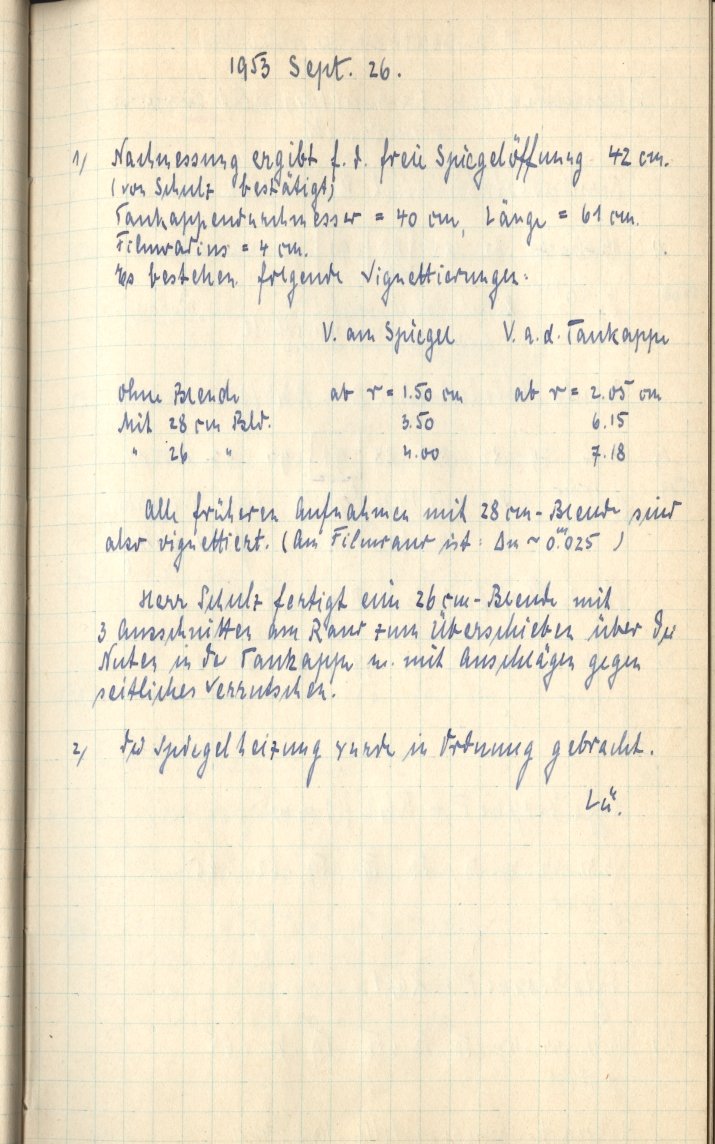 1953 Sept. 26.
1) Nachmessung ergibt f. d. freie Spiegelöffnung 42 cm.
(von Schulz bestätigt)
Taukappendurchmesser = 40 cm, Länge = 61 cm.
Filmradius = 4 cm.
Es bestehen folgende Vignettierungen:
V. am Spiegel V. a. d. Taukappe
ohne Blende ab r = 1.50 cm ab r = 2.05 cm
Mit 28 cm Bld. 3.50 6.15
" 26 " 4.00 7.18
Alle früheren Aufnahmen mit 28 cm-Blende sind
also vignettiert. (Am Filmrand ist: Δm ~ 0.ᵐ025)
Herr Schulz fertigt eine 26 cm-Blende mit
3 Ausschnitten am Rand zum Überschieben über die
Nuten in der Taukappe u. mit Anschlägen gegen
seitliches Verrutschen.
2) Die Spiegelheizung wurde in Ordnung gebracht.
Lü.